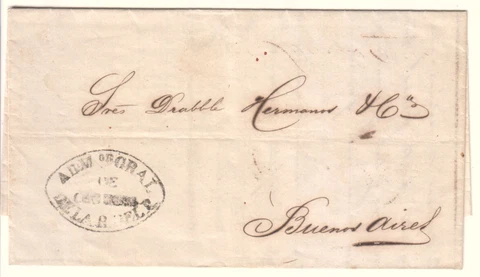 Sres Drabble Hermanos & Ca
ADMON GRAL
DE
CORREOS
DE LA R. DEL S.
Buenos Aires